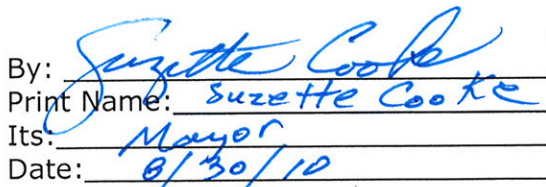 By: Suzette Cooke
Print Name: Suzette Cooke
Its: Mayor
Date: 8/30/10